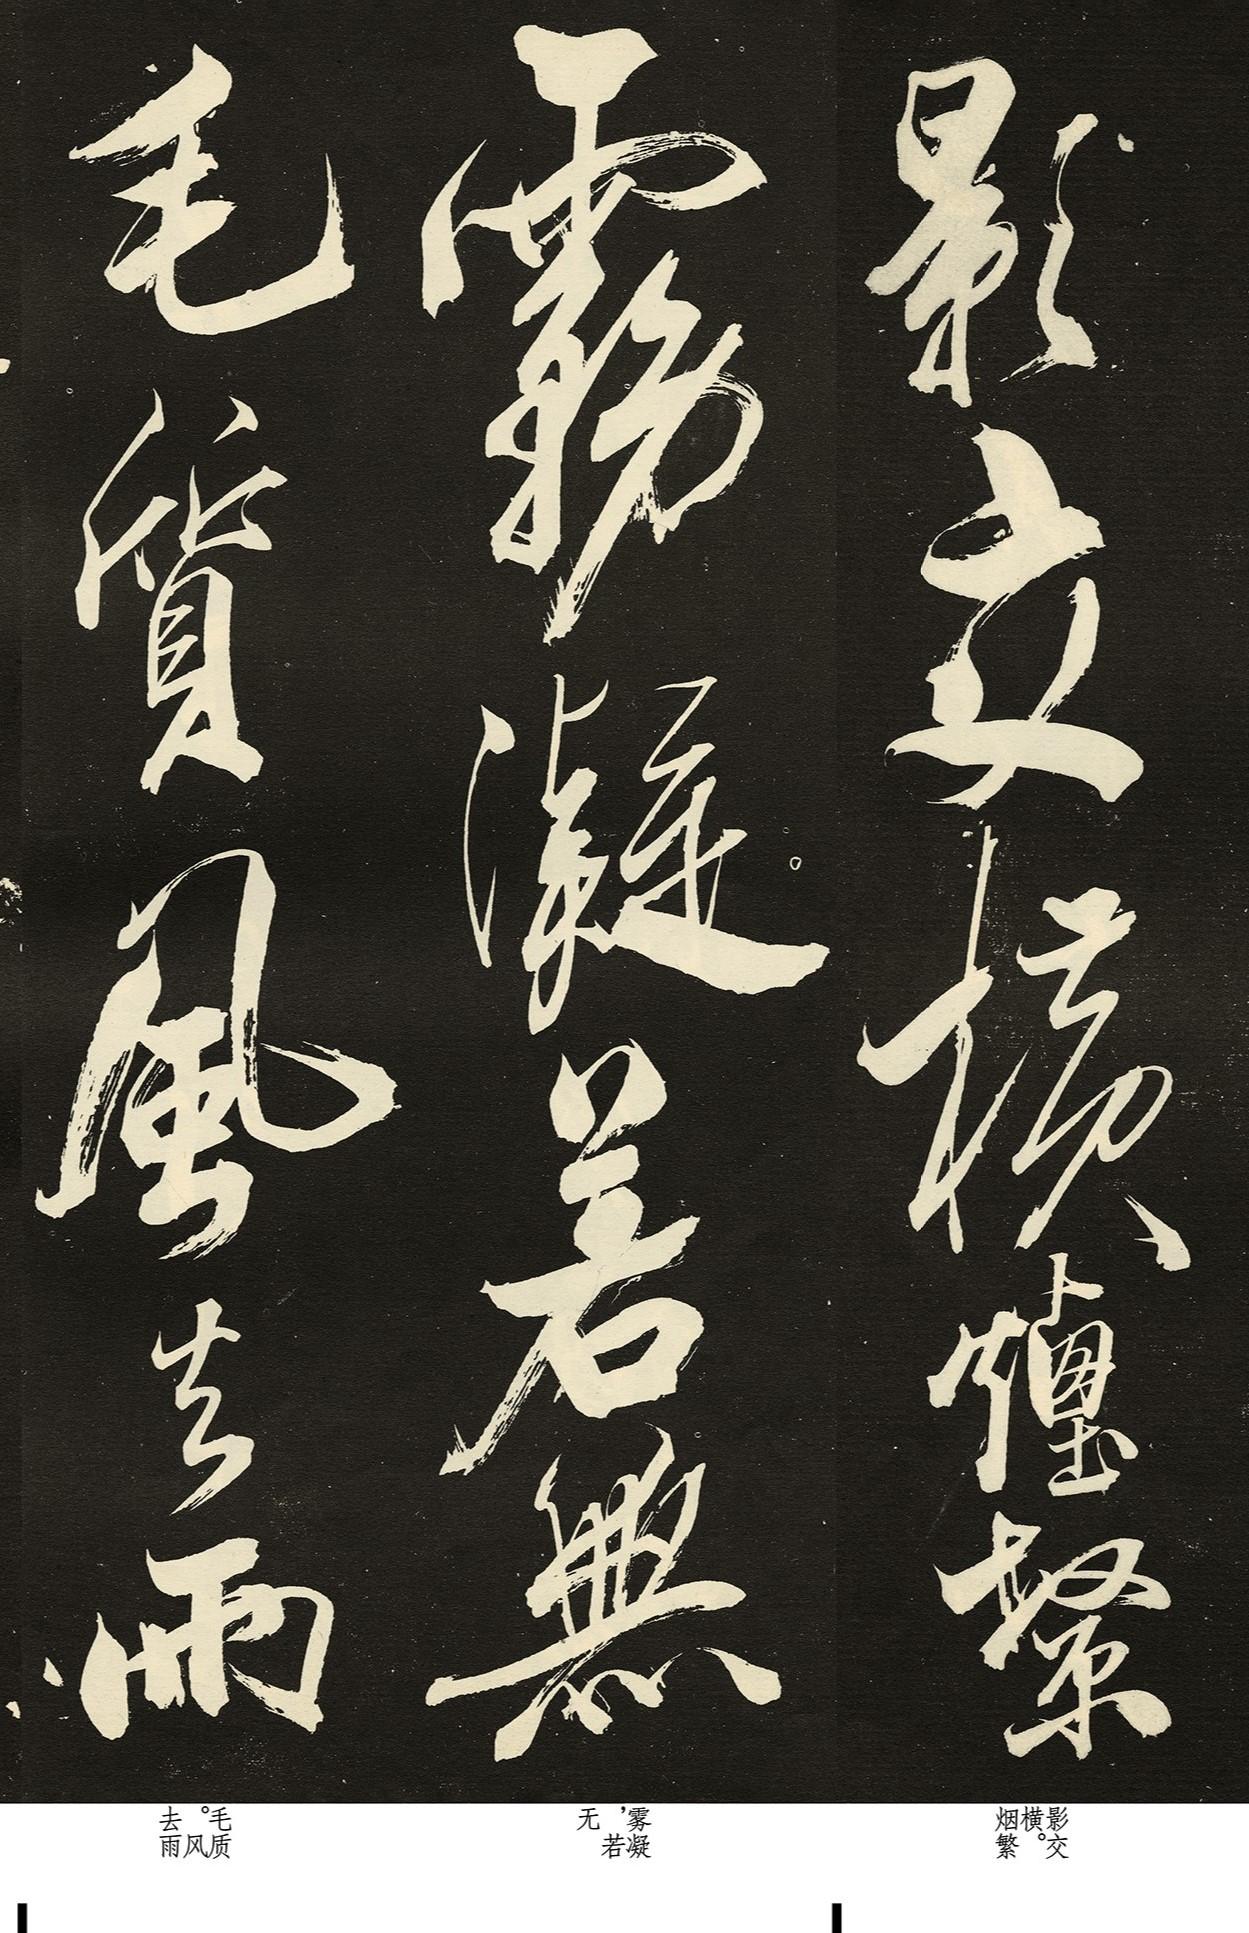 影交横煙繁
霧凝若無
毛質風去雨
影交
横。
烟繁
雾凝
，若
无
毛质
。风
去雨